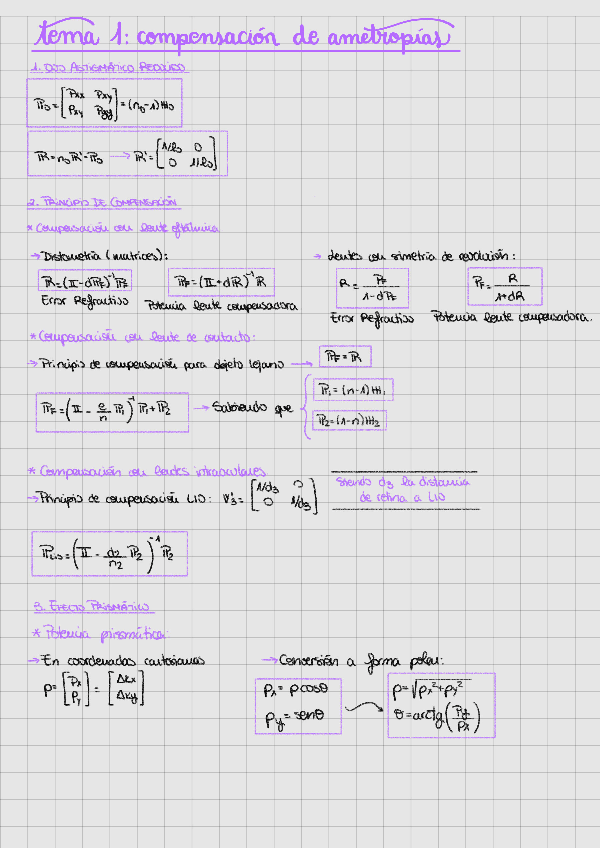 tema 1: compensación de ametropías
1. OJO ASTIGMÁTICO REDUCIDO
ℙ₀ = [Pxx Pxy; Pxy Pyy] = (n₀-1)ℍ₀
ℝ = n₀ℝ' - ℙ₀ → ℝ' = [1/l₀ 0; 0 1/l₀]
2. PRINCIPIO DE COMPENSACIÓN
* Compensación con lente oftálmica
→ Distometría (matrices):
→ Lentes con simetría de revolución:
ℝ = (𝕀 - dℙF)⁻¹ ℙF
ℙF = (𝕀 + dℝ)⁻¹ ℝ
R = PF / 1-dPF
PF = R / 1+dR
Error Refractivo Potencia lente compensadora
Error Refractivo Potencia lente compensadora.
* Compensación con lente de contacto:
→ Principio de compensación para objeto lejano → ℙF = ℝ
ℙF = (𝕀 - e/n ℙ₁)⁻¹ ℙ₁ + ℙ₂ → Sabiendo que
ℙ₁ = (n-1)ℍ₁
ℙ₂ = (1-n)ℍ₂
* Compensación con lentes intraoculares
→ Principio de compensación LIO: V'₃ = [1/d₃ 0; 0 1/d₃]
siendo d₃ la distancia
de retina a LIO
ℙLIO = (𝕀 - d₂/n₂ ℙ₂)⁻¹ ℙ₂
3. EFECTO PRISMÁTICO
* Potencia prismática:
→ En coordenadas cartesianas
→ Conversión a forma polar:
p = [Px; Py] = [Δkx; Δky]
Px = p cosθ
Py = senθ
p = √px²+py²
θ = arctg(Py/Px)